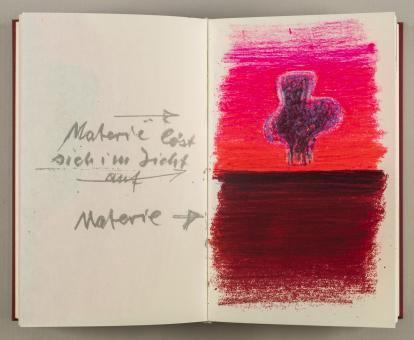 Materie löst
sich im Licht
auf
Materie →